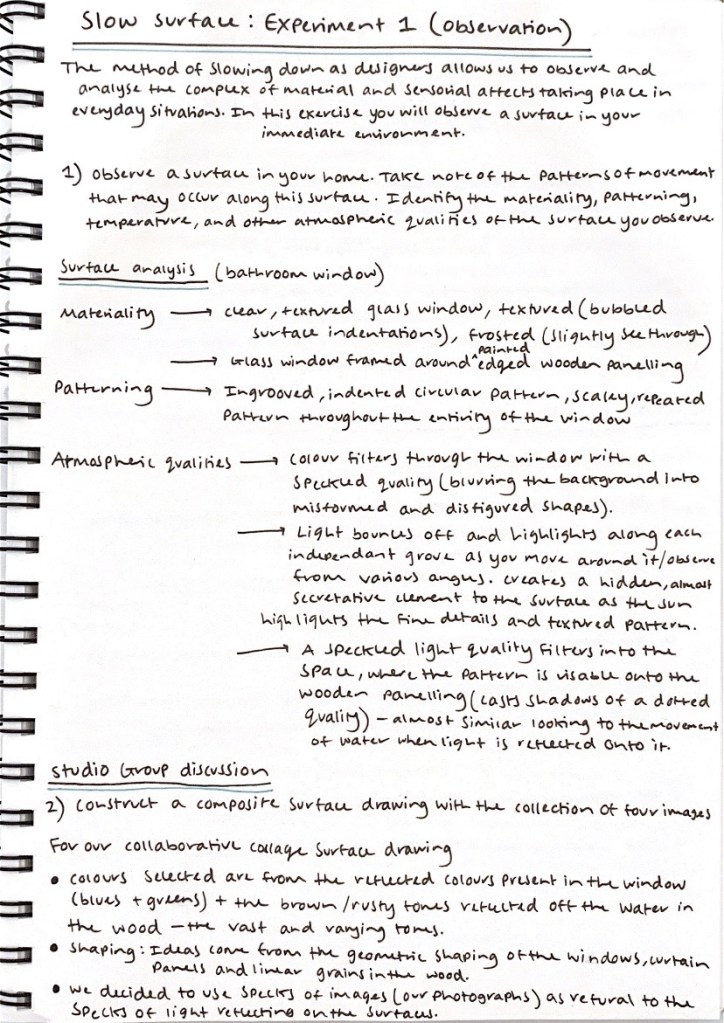 Slow Surface: Experiment 1 (Observation)
The method of slowing down as designers allows us to observe and
analyse the complex of material and sensorial affects taking place in
everyday situations. In this exercise you will observe a surface in your
immediate environment.
1) Observe a surface in your home. Take note of the patterns of movement
that may occur along this surface. Identify the materiality, patterning,
temperature, and other atmospheric qualities of the surface you observe.
Surface analysis (bathroom window)
Materiality → clear, textured glass window, textured (bubbled
surface indentations), frosted (slightly see through)
→ Glass window framed around ^painted edged wooden panelling
Patterning → Ingrooved, indented circular pattern, scaley, repeated
pattern throughout the entirity of the window
Atmospheric qualities → colour filters through the window with a
speckled quality (blurring the background into
misformed and disfigured shapes).
→ Light bounces off and highlights along each
independant grove as you move around it/observe
from various angles. creates a hidden, almost
secretative element to the surface as the sun
highlights the fine details and textured pattern.
→ A speckled light quality filters into the
space, where the pattern is visable onto the
wooden panelling (casts shadows of a dotted
quality) - almost similar looking to the movement
of water when light is reflected onto it.
Studio Group discussion
2) Construct a composite surface drawing with the collection of four images
For our collaborative collage surface drawing
• colours selected are from the reflected colours present in the window
(blues + greens) + the brown/rusty tones reflected off the water in
the wood - the vast and varying tones.
• Shaping: Ideas come from the geometric shaping of the windows, curtain
panels and linear grains in the wood.
• we decided to use specks of images (our photographs) as refural to the
specks of light reflecting on the surfaces.